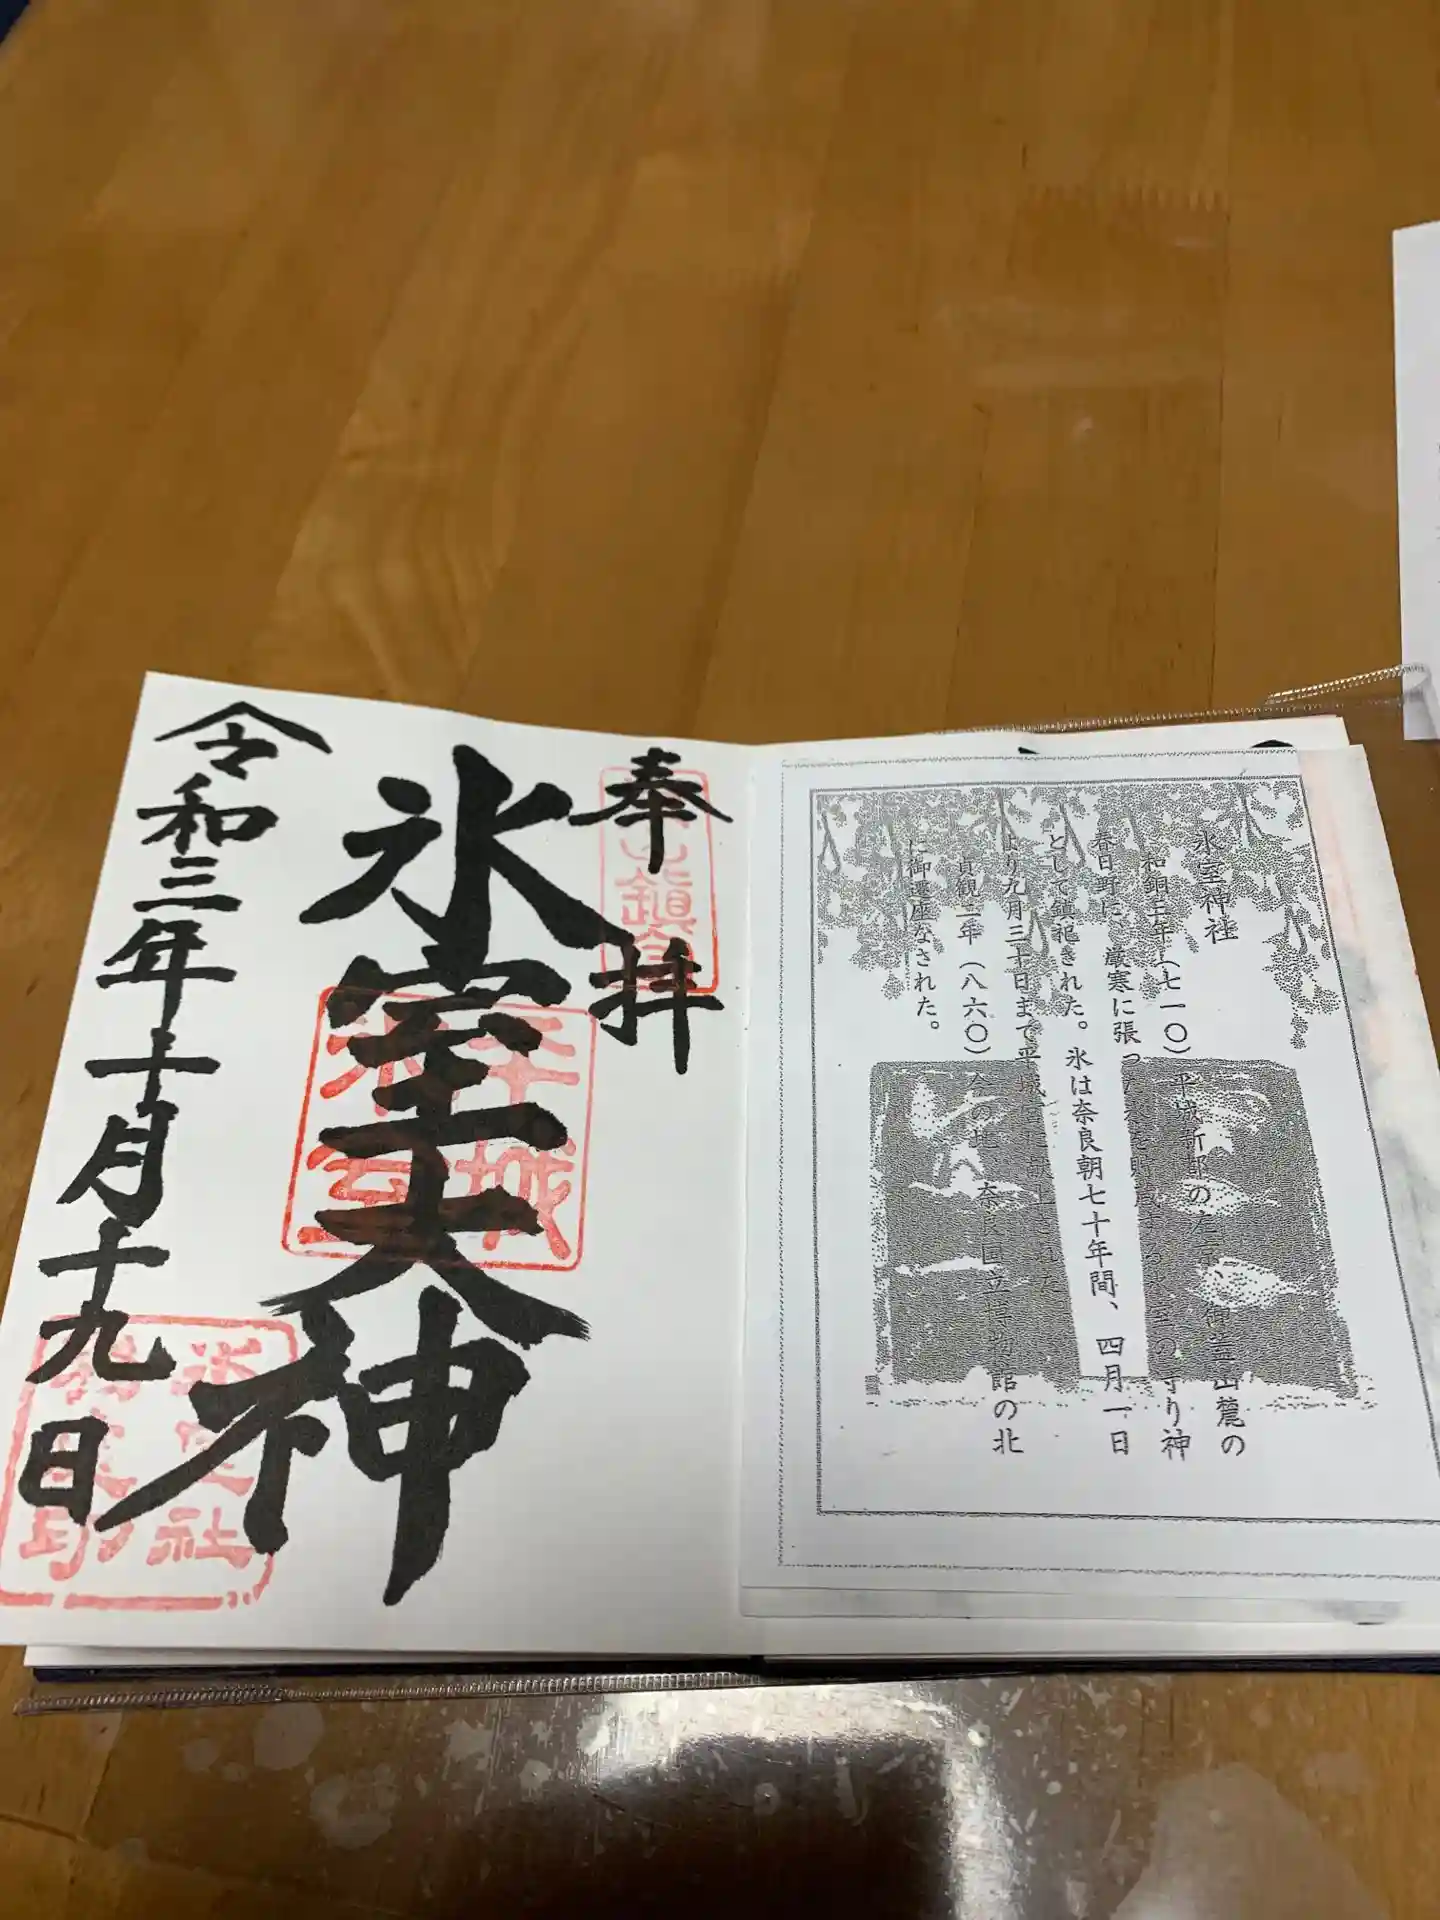 氷室神社
和銅三年（七一〇）平城新都の左京、御蓋山麓の
春日野に、厳寒に張った氷を貯蔵する氷室の守り神
として鎮祀された。氷は奈良朝七十年間、四月一日
より九月三十日まで平城宮に献上された
貞観二年（八六〇）今の地、奈良国立博物館の北
に御遷座なされた。
奉拝
氷室大神
令和三年十月十九日
平城
氷室
氷室神社